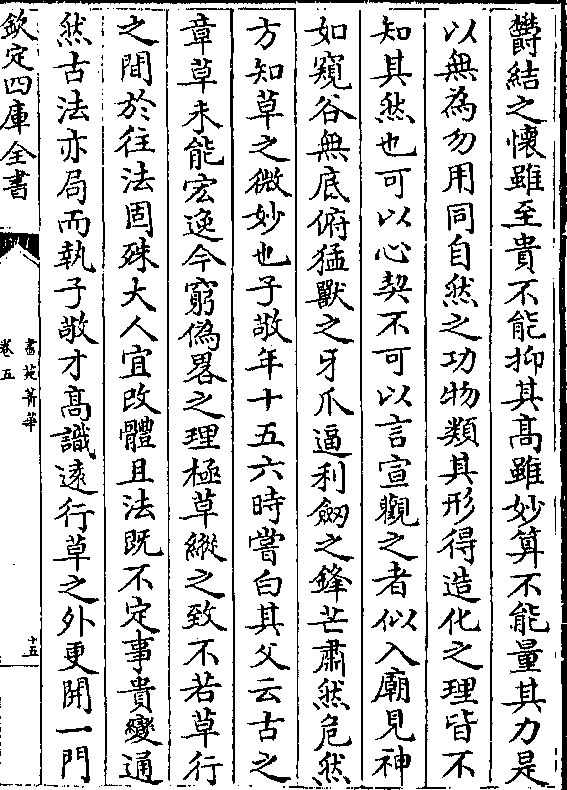 欝結之懷雖至貴不能抑其髙雖妙算不能量其力是
以無為而用同自然之功物類其形得造化之理皆不
知其然也可以心契不可以言宣觀之者似入廟見神
如窺谷無底俯猛獸之牙爪逼利劒之鋒芒肅然危然
方知草之微妙也子敬年十五六時嘗白其父云古之
章草未能宏逸今窮偽畧之理極草縱之致不若草行
之間於往法固殊大人宜改體且法既不定事貴變通
然古法亦局而執子敬才髙識逺行草之外更開一門
欽定四庫全書
書苑菁華
卷五
十五